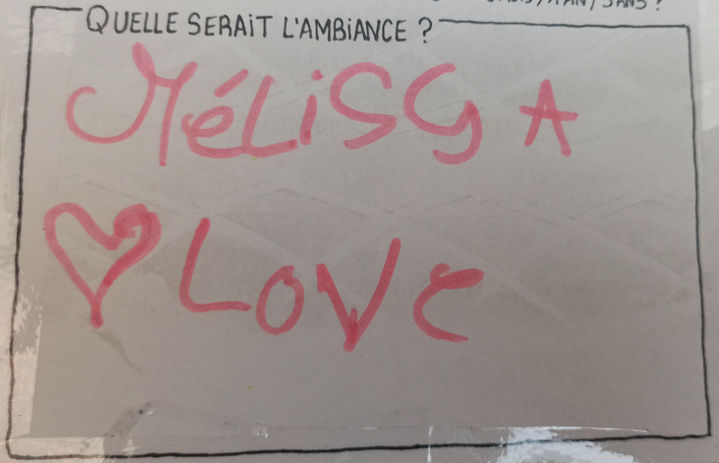 QUELLE SERAIT L'AMBIANCE ?
MéLiSSA
♡ LOVe